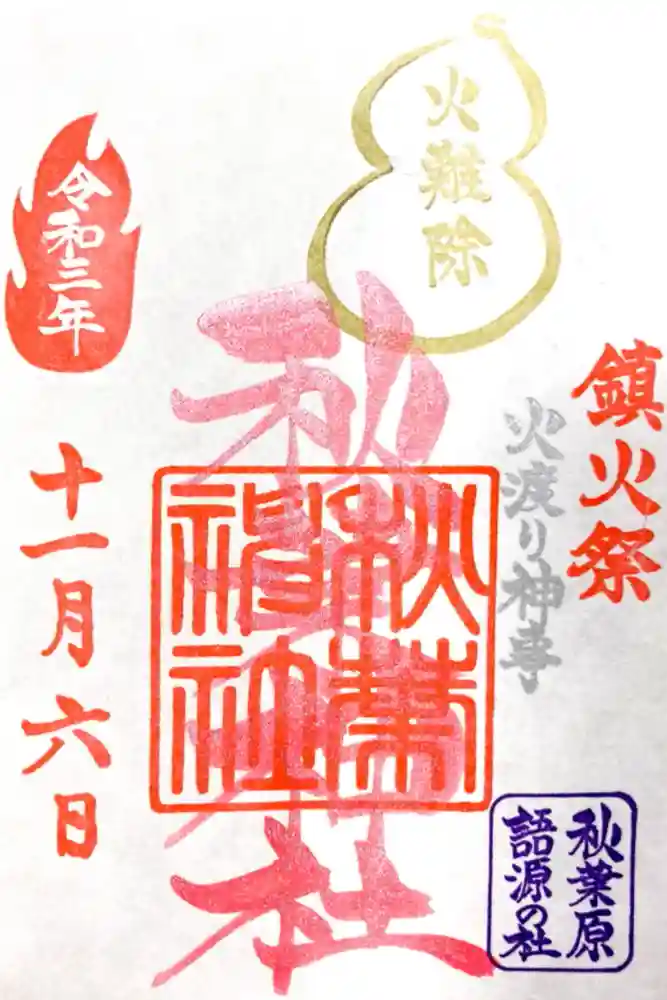 火難除
鎮火祭
火渡り神事
秋葉神社
秋葉
神社
秋葉原
語源の社
令和三年
十一月六日